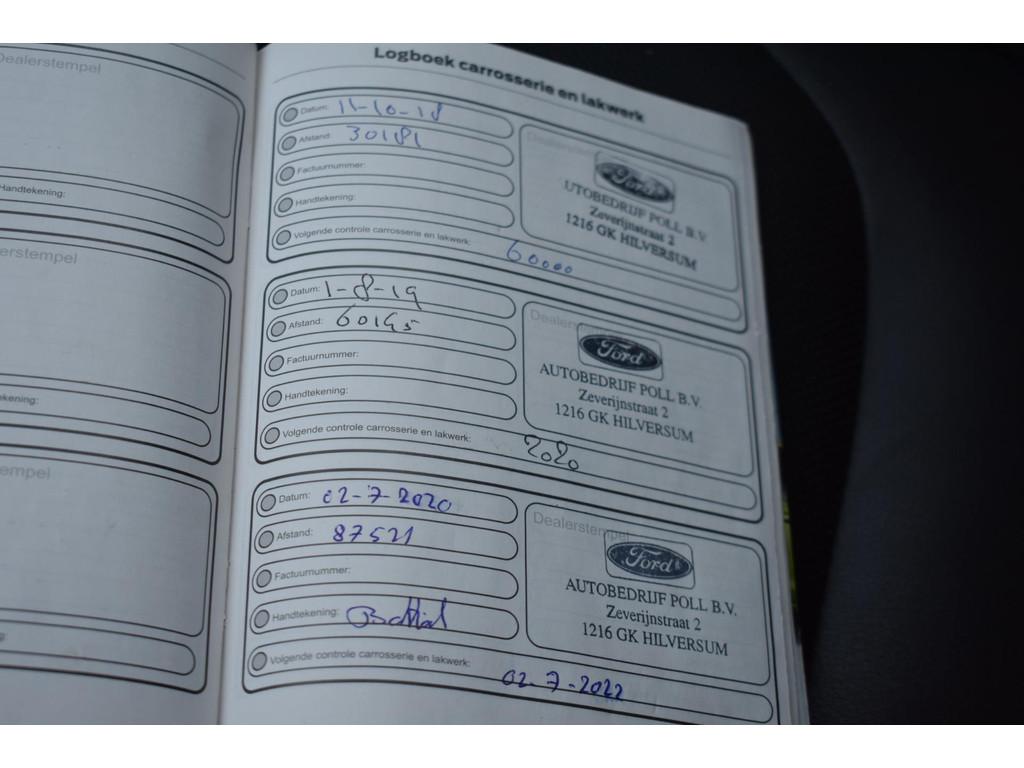 Dealerstempel
Handtekening:
erstempel
ekening:
empel
g:
Logboek carrosserie en lakwerk
Datum: 11-10-18
Afstand: 30181
Factuurnummer:
Handtekening:
Volgende controle carrosserie en lakwerk: 60000
Ford
UTOBEDRIJF POLL B.V.
Zeverijnstraat 2
1216 GK HILVERSUM
Datum: 1-8-19
Afstand: 60195
Factuurnummer:
Handtekening:
Volgende controle carrosserie en lakwerk: 2020
Ford
AUTOBEDRIJF POLL B.V.
Zeverijnstraat 2
1216 GK HILVERSUM
Datum: 02-7-2020
Afstand: 87521
Factuurnummer:
Handtekening:
Volgende controle carrosserie en lakwerk: 02-7-2022
Dealerstempel
Ford
AUTOBEDRIJF POLL B.V.
Zeverijnstraat 2
1216 GK HILVERSUM